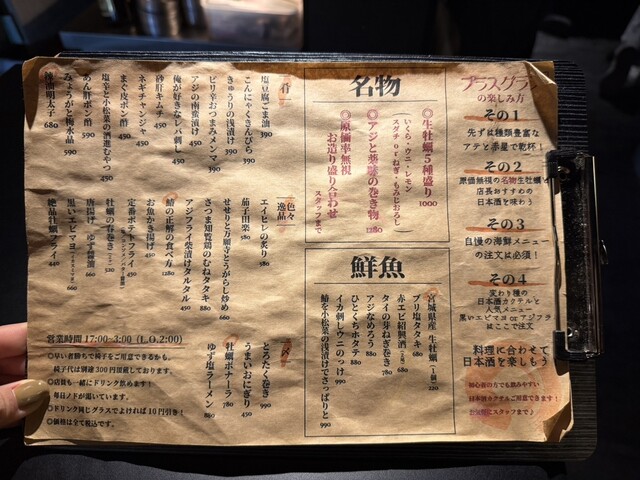 プラスグラン
の楽しみ方
その1
先ずは種類豊富な
アテと赤星で乾杯！
その2
原価無視の名物生牡蠣と
店長おすすめの
日本酒を味わう
その3
自慢の海鮮メニュー
の注文は必須！
その4
変わり種の
日本酒カクテルと
人気メニュー
黒いエビマヨ or アジフラ
はここで注文
料理に合わせて
日本酒を楽しもう
初心者の方でも飲みやすい
日本酒カクテルご用意できます！
お気軽にスタッフまで♪
名物
◎生牡蠣5種盛り 1000
いくら・ウニ・レモン
スダチ or ねぎ・もみじおろし
◎アジと薬味の巻き物 1280
◎原価率無視
お造り盛り合わせ
スタッフまで
鮮魚
宮城県産 生牡蠣(1個) 220
ブリ塩タタキ 680
赤エビ紹興酒(2本) 680
タイの芽ねぎ巻き 780
アジなめろう 880
ひとくちホタテ 880
イカ刺しウニのっけ 990
鰆を小松菜の浅漬けでさっぱりと 990
肴
塩豆腐ごま油 390
こんにゃくきんぴら 390
きゅうりの浅漬け 390
ピリ辛おつまみメンマ 390
アジの南蛮漬け 450
俺が好きなレバ刺し 450
砂肝キムチ 450
ネギチャンジャ 450
まぐろポン酢 450
塩辛と小松菜の酒進むやつ 450
あん肝ポン酢 590
みょうがと梅水晶 590
凍결明太子 680
色々
逸品
エイヒレの炙り 580
茄子田楽 580
せせりと万願寺とうがらし炒め 660
さつま知覧鶏のむねタタキ 880
アジフライ柴漬けタルタル 450
鰆の正解の食べ方 1280
お魚かき揚げ 450
定番ポテトフライ 450
牡蠣の春巻き 520
唐揚げ ゆず醤油 660
黒いエビマヨ 660
絶品牡蠣フライ 440
〆
とろたく巻き 990
うまいおにぎり 430
牡蠣ボナーラ 780
ゆず塩ラーメン 890
営業時間 17:00~3:00 (L.O.2:00)
◎早い者勝ちで椅子をご用意できるかも。
椅子代は別途300円頂戴しております。
◎店員も一緒にドリンク飲めます！
毎日ノドが潤いています。
◎ドリンク同じグラスでよければ10円引き！
◎価格は全て税込です。